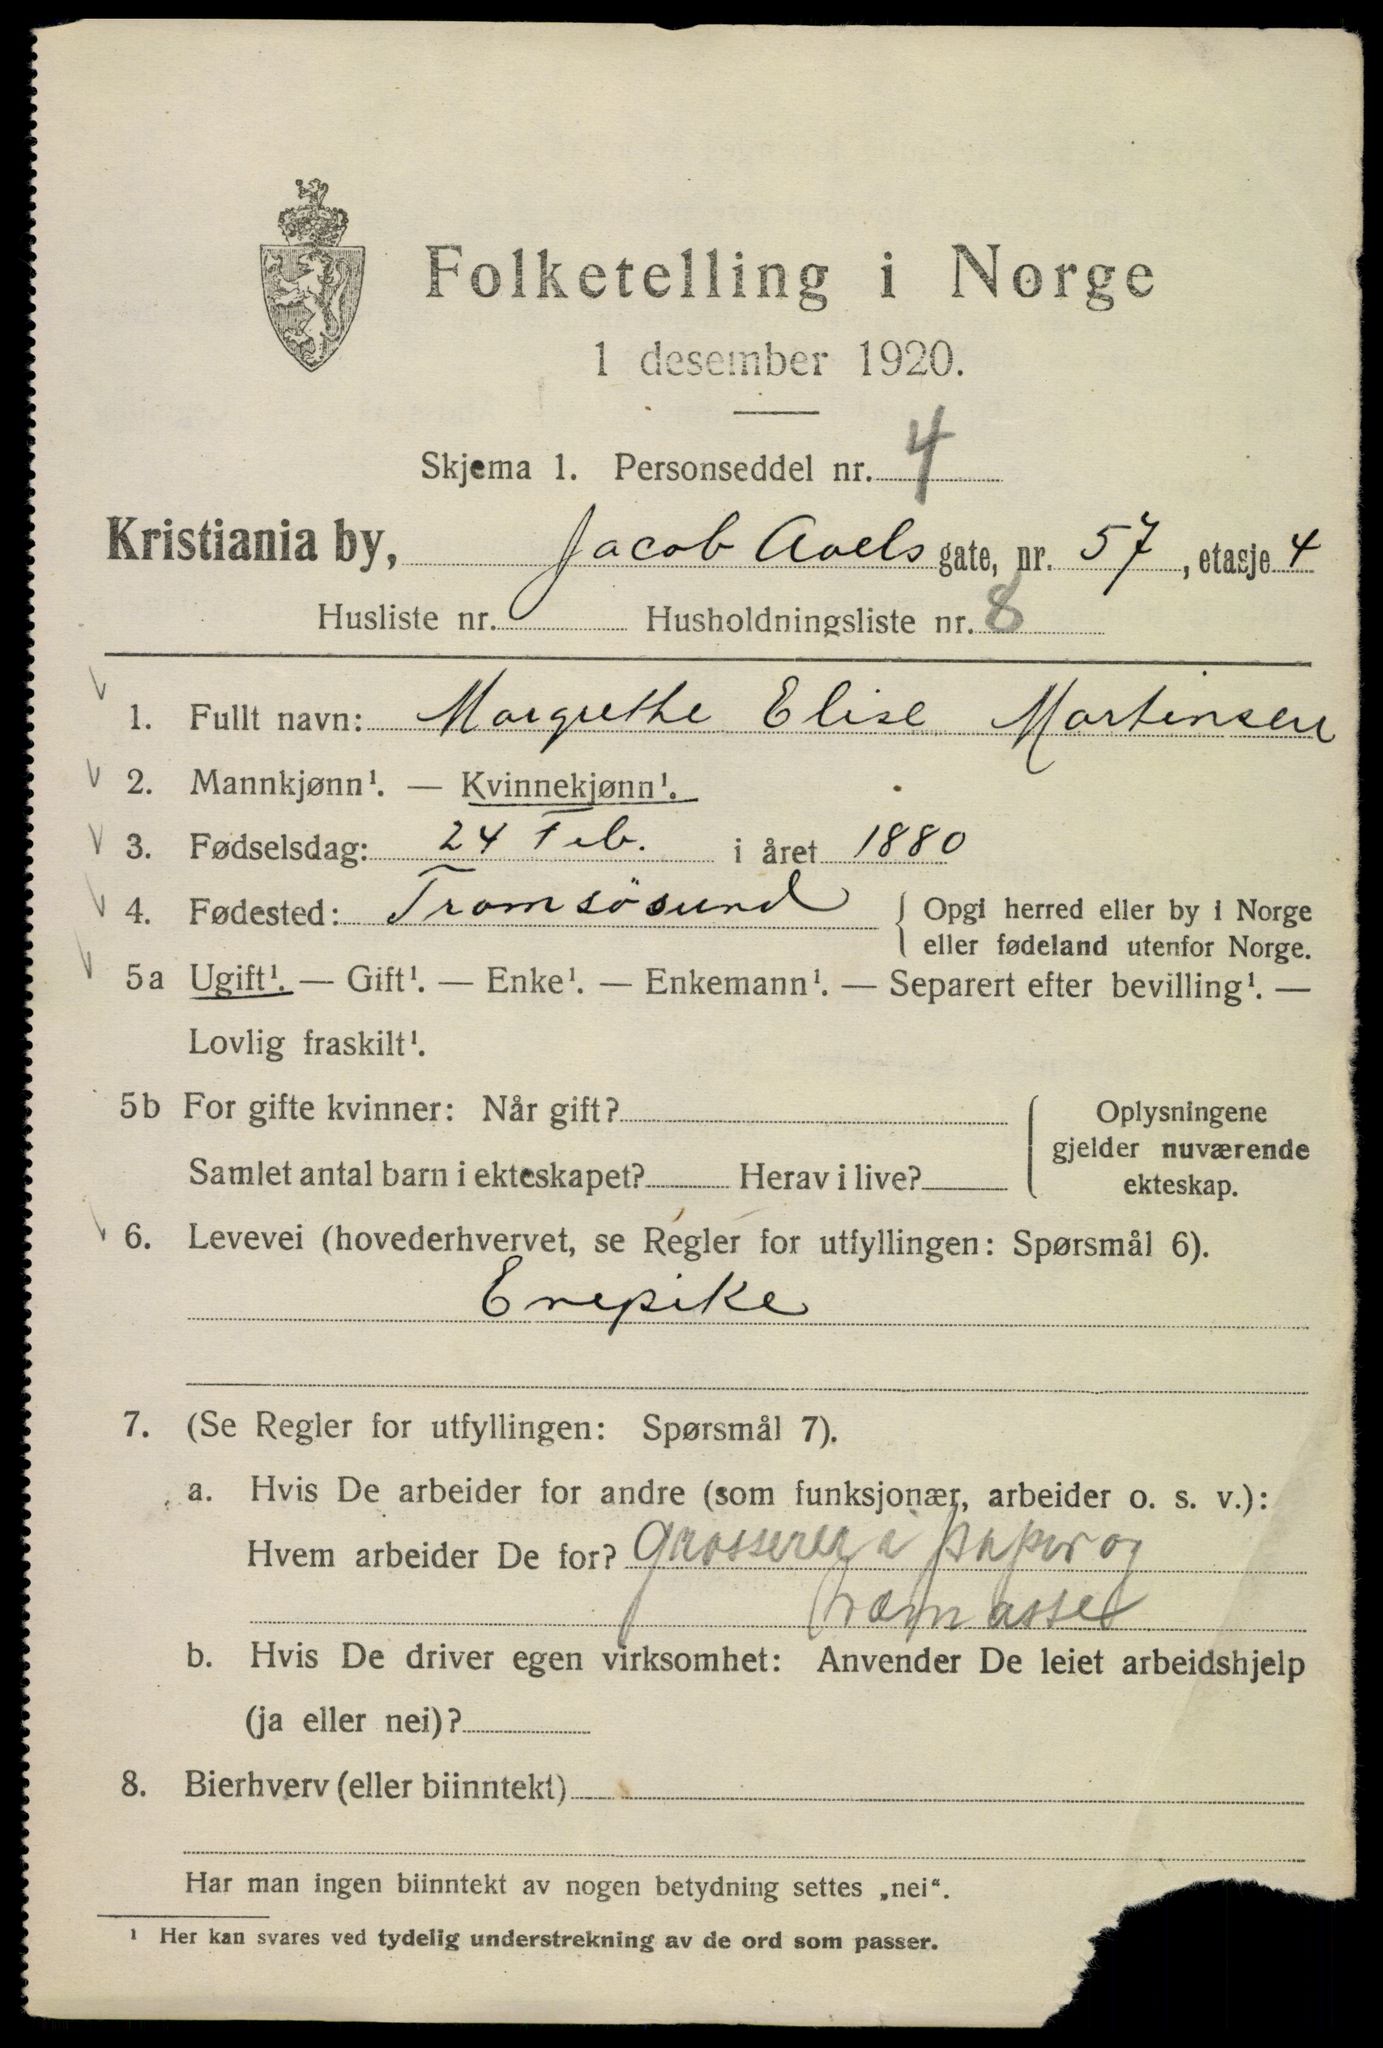 Folketelling i Norge
1 desember 1920.
Skjema 1. Personseddel nr. 4
Kristiania by, Jacob Aaels gate, nr. 57, etasje 4
Husliste nr. Husholdningsliste nr. 8
1. Fullt navn: Margrethe Elise Martinsen
2. Mannkjønn¹. — Kvinnekjønn¹.
3. Fødselsdag: 24 Feb. i året 1880
4. Fødested: Tromsösund { Opgi herred eller by i Norge
eller fødeland utenfor Norge.
5a Ugift¹. — Gift¹. — Enke¹. — Enkemann¹. — Separert efter bevilling¹. —
Lovlig fraskilt¹.
5b For gifte kvinner: Når gift? Oplysningene
gjelder nuværende
Samlet antal barn i ekteskapet? Herav i live? ekteskap.
6. Levevei (hovederhvervet, se Regler for utfyllingen: Spørsmål 6).
Enepike
7. (Se Regler for utfyllingen: Spørsmål 7).
a. Hvis De arbeider for andre (som funksjonær, arbeider o. s. v.):
Hvem arbeider De for? Grosserer i papir og
træmasse
b. Hvis De driver egen virksomhet: Anvender De leiet arbeidshjelp
(ja eller nei)?
8. Bierhverv (eller biinntekt)
Har man ingen biinntekt av nogen betydning settes „nei“.
¹ Her kan svares ved tydelig understrekning av de ord som passer.